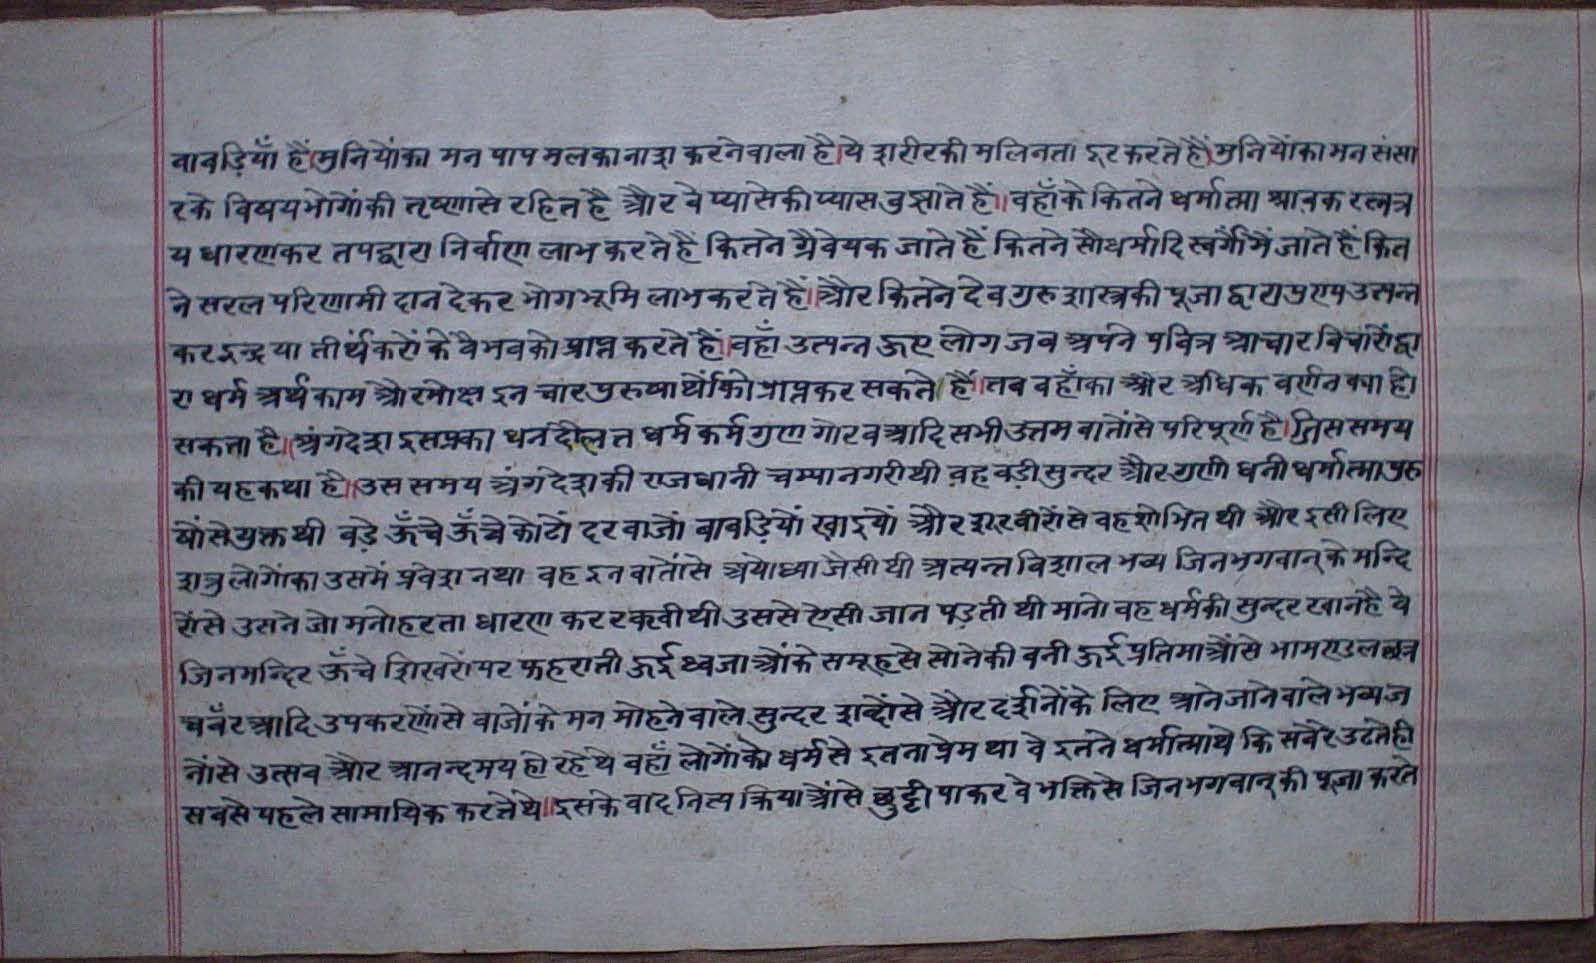 बावड़ियाँ हैं।मुनियोंका मन पाप मलका नाश करनेवाला है।ये शरीरकी मलिनता दूर करते हैं।मुनियोंका मन संसा
रके विषयभोगोंकी तृष्णासे रहित है और वे प्यासेकी प्यास बुझाते हैं॥वहाँ के कितने धर्मात्मा श्रावक रत्नत्र
य धारणकर तपद्वारा निर्वाण लाभ करते हैं कितने ग्रैवेयक जाते हैं कितने सौधर्मादि स्वर्गोंमें जाते हैं कित
ने सरल परिणामी दान देकर भोगभूमि लाभ करते हैं॥और कितने देव गुरु शास्त्रकी पूजा द्वारा पुण्य उत्पन्न
कर इन्द्र या तीर्थंकरों के वैभवको प्राप्त करते हैं।वहाँ उत्पन्न हुए लोग जब अपने पवित्र आचार विचारोंद्वा
रा धर्म अर्थ काम और मोक्ष इन चार पुरुषार्थोंको प्राप्त कर सकते हैं॥तब वहाँका और अधिक वर्णन क्या हो
सकता है।अंगदेश इसप्रका धन दौलत्त धर्म कर्म गुण गोरव आदि सभी उत्तम बातोंसे परिपूर्ण है।जिस समय
की यह कथा है॥उस समय अंगदेशकी राजधानी चम्पानगरी थी वह बड़ी सुन्दर और गुणी धनी धर्मात्मा पुरु
षोंसे युक्त थी बड़े ऊँचे ऊँचे कोटों दरवाजों बावड़ियों खाइयों और शूरवीरोंसे वह शोभित थी और इसी लिए
शत्रु लोगोंका उसमें प्रवेश न था वह इन बातोंसे अयोध्या जैसी थी अत्यन्त विशाल भव्य जिनभगवान् के मन्दि
रोंसे उसने जो मनोहरता धारण कर रक्खी थी उससे ऐसी जान पड़ती थी मानो वह धर्मकी सुन्दर खान है वे
जिनमन्दिर ऊँचे शिखरोंपर फहराती हुई ध्वजाओंके समूहसे सोनेकी बनी हुई प्रतिमाओंसे भामण्डल छत्र
चवँर आदि उपकरणोंसे बाजोंके मन मोहनेवाले सुन्दर शब्दोंसे और दर्शनोंके लिए आने जाने वाले भव्यज
नोंसे उत्सव और आनन्दमय हो रहे थे वहाँ लोगोंको धर्म से इतना प्रेम था वे इतने धर्मात्मा थे कि सबेरे उटते ही
सबसे पहले सामायिक करते थे॥इसके बाद नित्य क्रियाओंसे छुट्टी पाकर वे भक्तिसे जिनभगवान् की पूजा करते